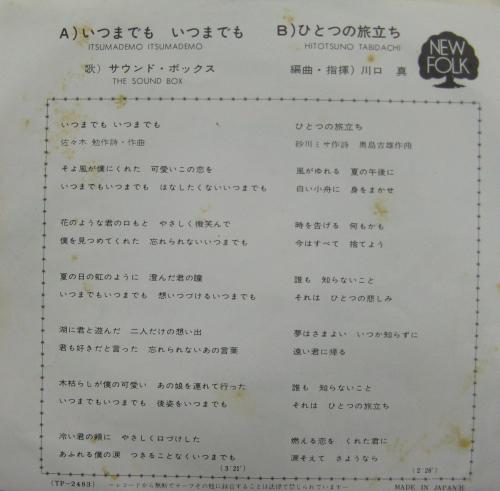 A)いつまでも いつまでも
ITSUMADEMO ITSUMADEMO
歌) サウンド・ボックス
THE SOUND BOX
B)ひとつの旅立ち
HITOTSUNO TABIDACHI
編曲・指揮)川口 真
NEW FOLK
いつまでも いつまでも
佐々木 勉作詩・作曲
そよ風が僕にくれた 可愛いこの恋を
いつまでもいつまでも はなしたくないいつまでも
花のような君の口もと やさしく微笑んで
僕を見つめてくれた 忘れられないいつまでも
夏の日の虹のように 澄んだ君の瞳
いつまでもいつまでも 想いつづけるいつまでも
湖に君と遊んだ 二人だけの想い出
君も好きだと言った 忘れられないあの言葉
木枯らしが僕の可愛い あの娘を連れて行った
いつまでもいつまでも 後姿をいつまでも
冷い君の頬に やさしく口づけした
あふれる僕の涙 つきることなくいつまでも
(3′25″)
ひとつの旅立ち
砂川ミサ作詩 奥島吉雄作曲
風がゆれる 夏の午後に
白い小舟に 身をまかせ
時を告げる 何もかも
今はすべて 捨てよう
誰も 知らないこと
それは ひとつの悲しみ
夢はさまよい いつか知らずに
遠い君に帰る
誰も 知らないこと
それは ひとつの旅立ち
燃える恋を くれた君に
涙そえて さようなら
(2′28″)
(TP-2483)
―レコードから無断でテープその他に録音することは法律で禁じられています―
MADE IN JAPAN